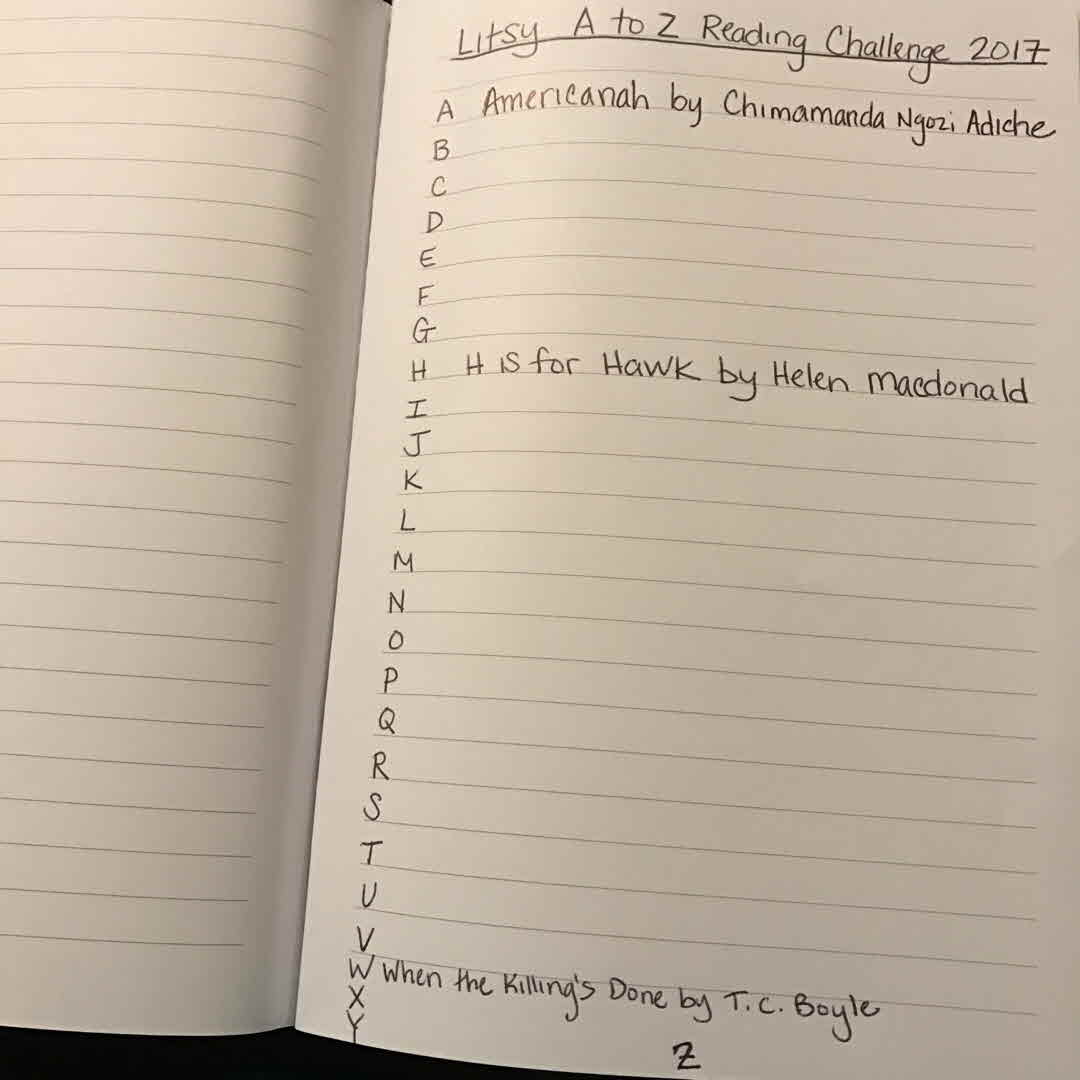 Litsy A to Z Reading Challenge 2017
A Americanah by Chimamanda Ngozi Adiche
B
C
D
E
F
G
H H is for Hawk by Helen Macdonald
I
J
K
L
M
N
O
P
Q
R
S
T
U
V
W When the Killing's Done by T.C. Boyle
X
Y
Z